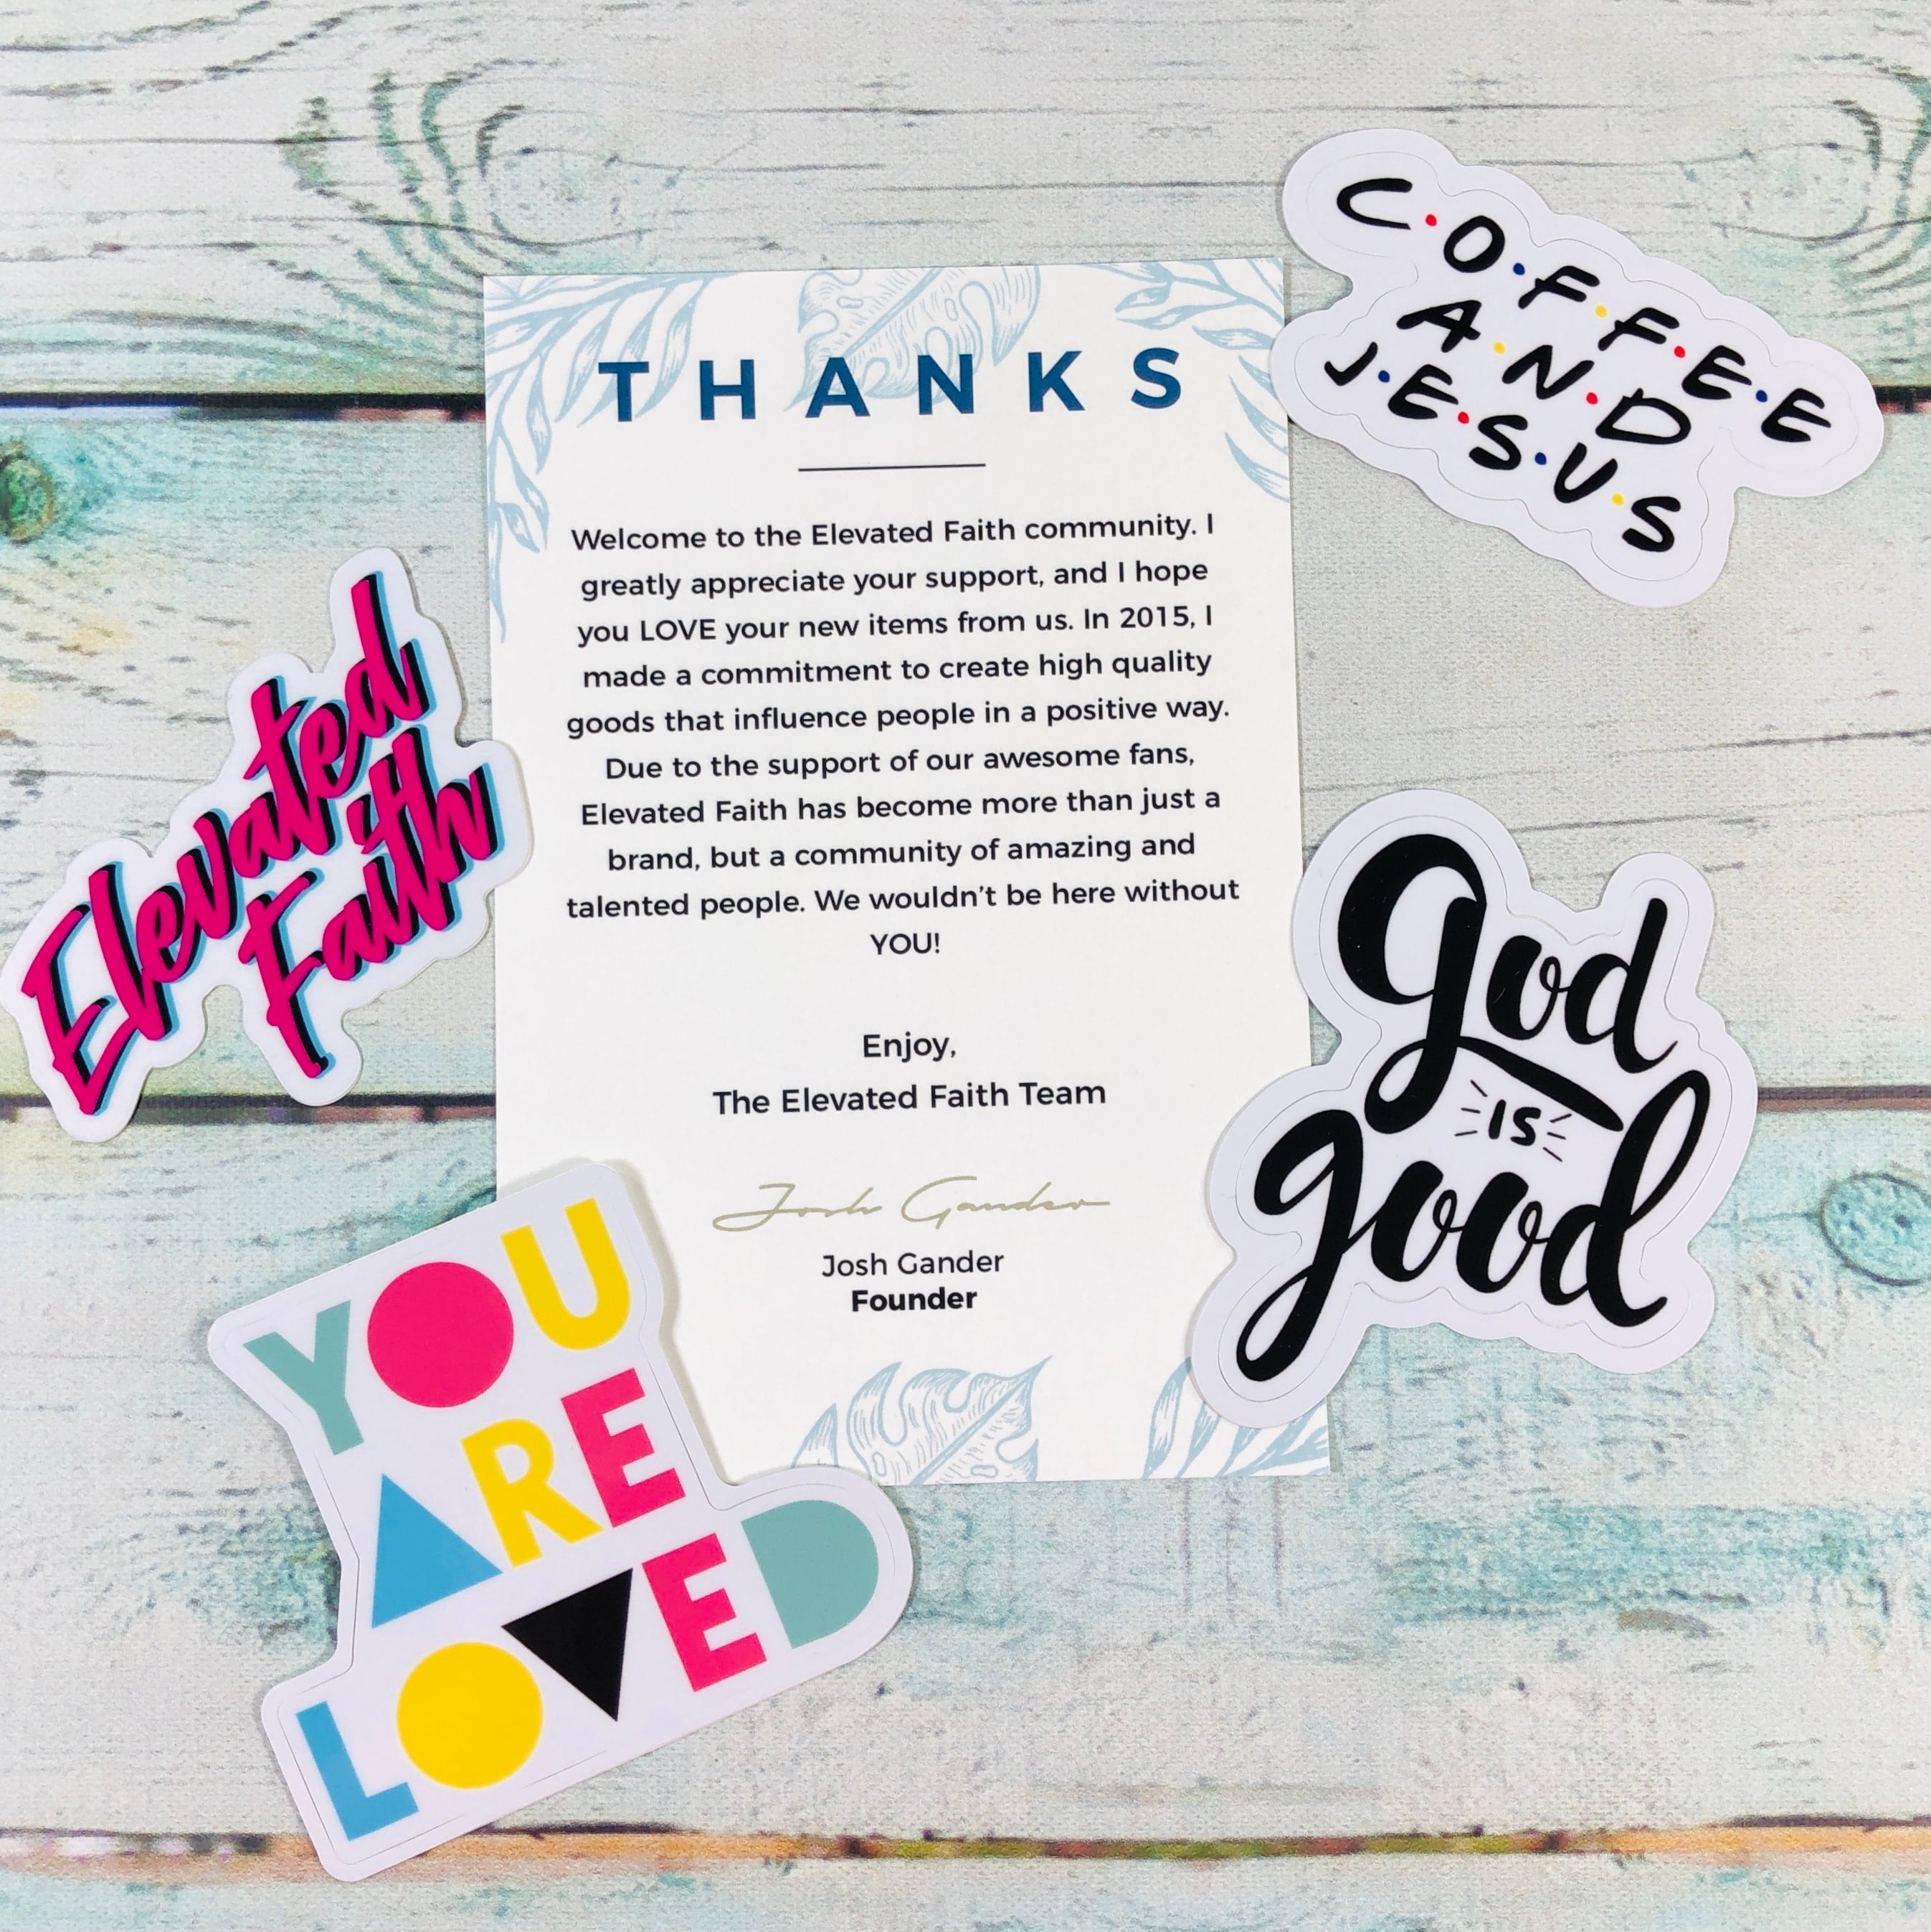 C•O•F•F•E•E
A•N•D
J•E•S•U•S
THANKS
Welcome to the Elevated Faith community. I
greatly appreciate your support, and I hope
you LOVE your new items from us. In 2015, I
made a commitment to create high quality
goods that influence people in a positive way.
Due to the support of our awesome fans,
Elevated Faith has become more than just a
brand, but a community of amazing and
talented people. We wouldn't be here without
YOU!
Enjoy,
The Elevated Faith Team
Josh Gander
Josh Gander
Founder
Elevated
Faith
god
IS
good
YOU
ARE
LOVED